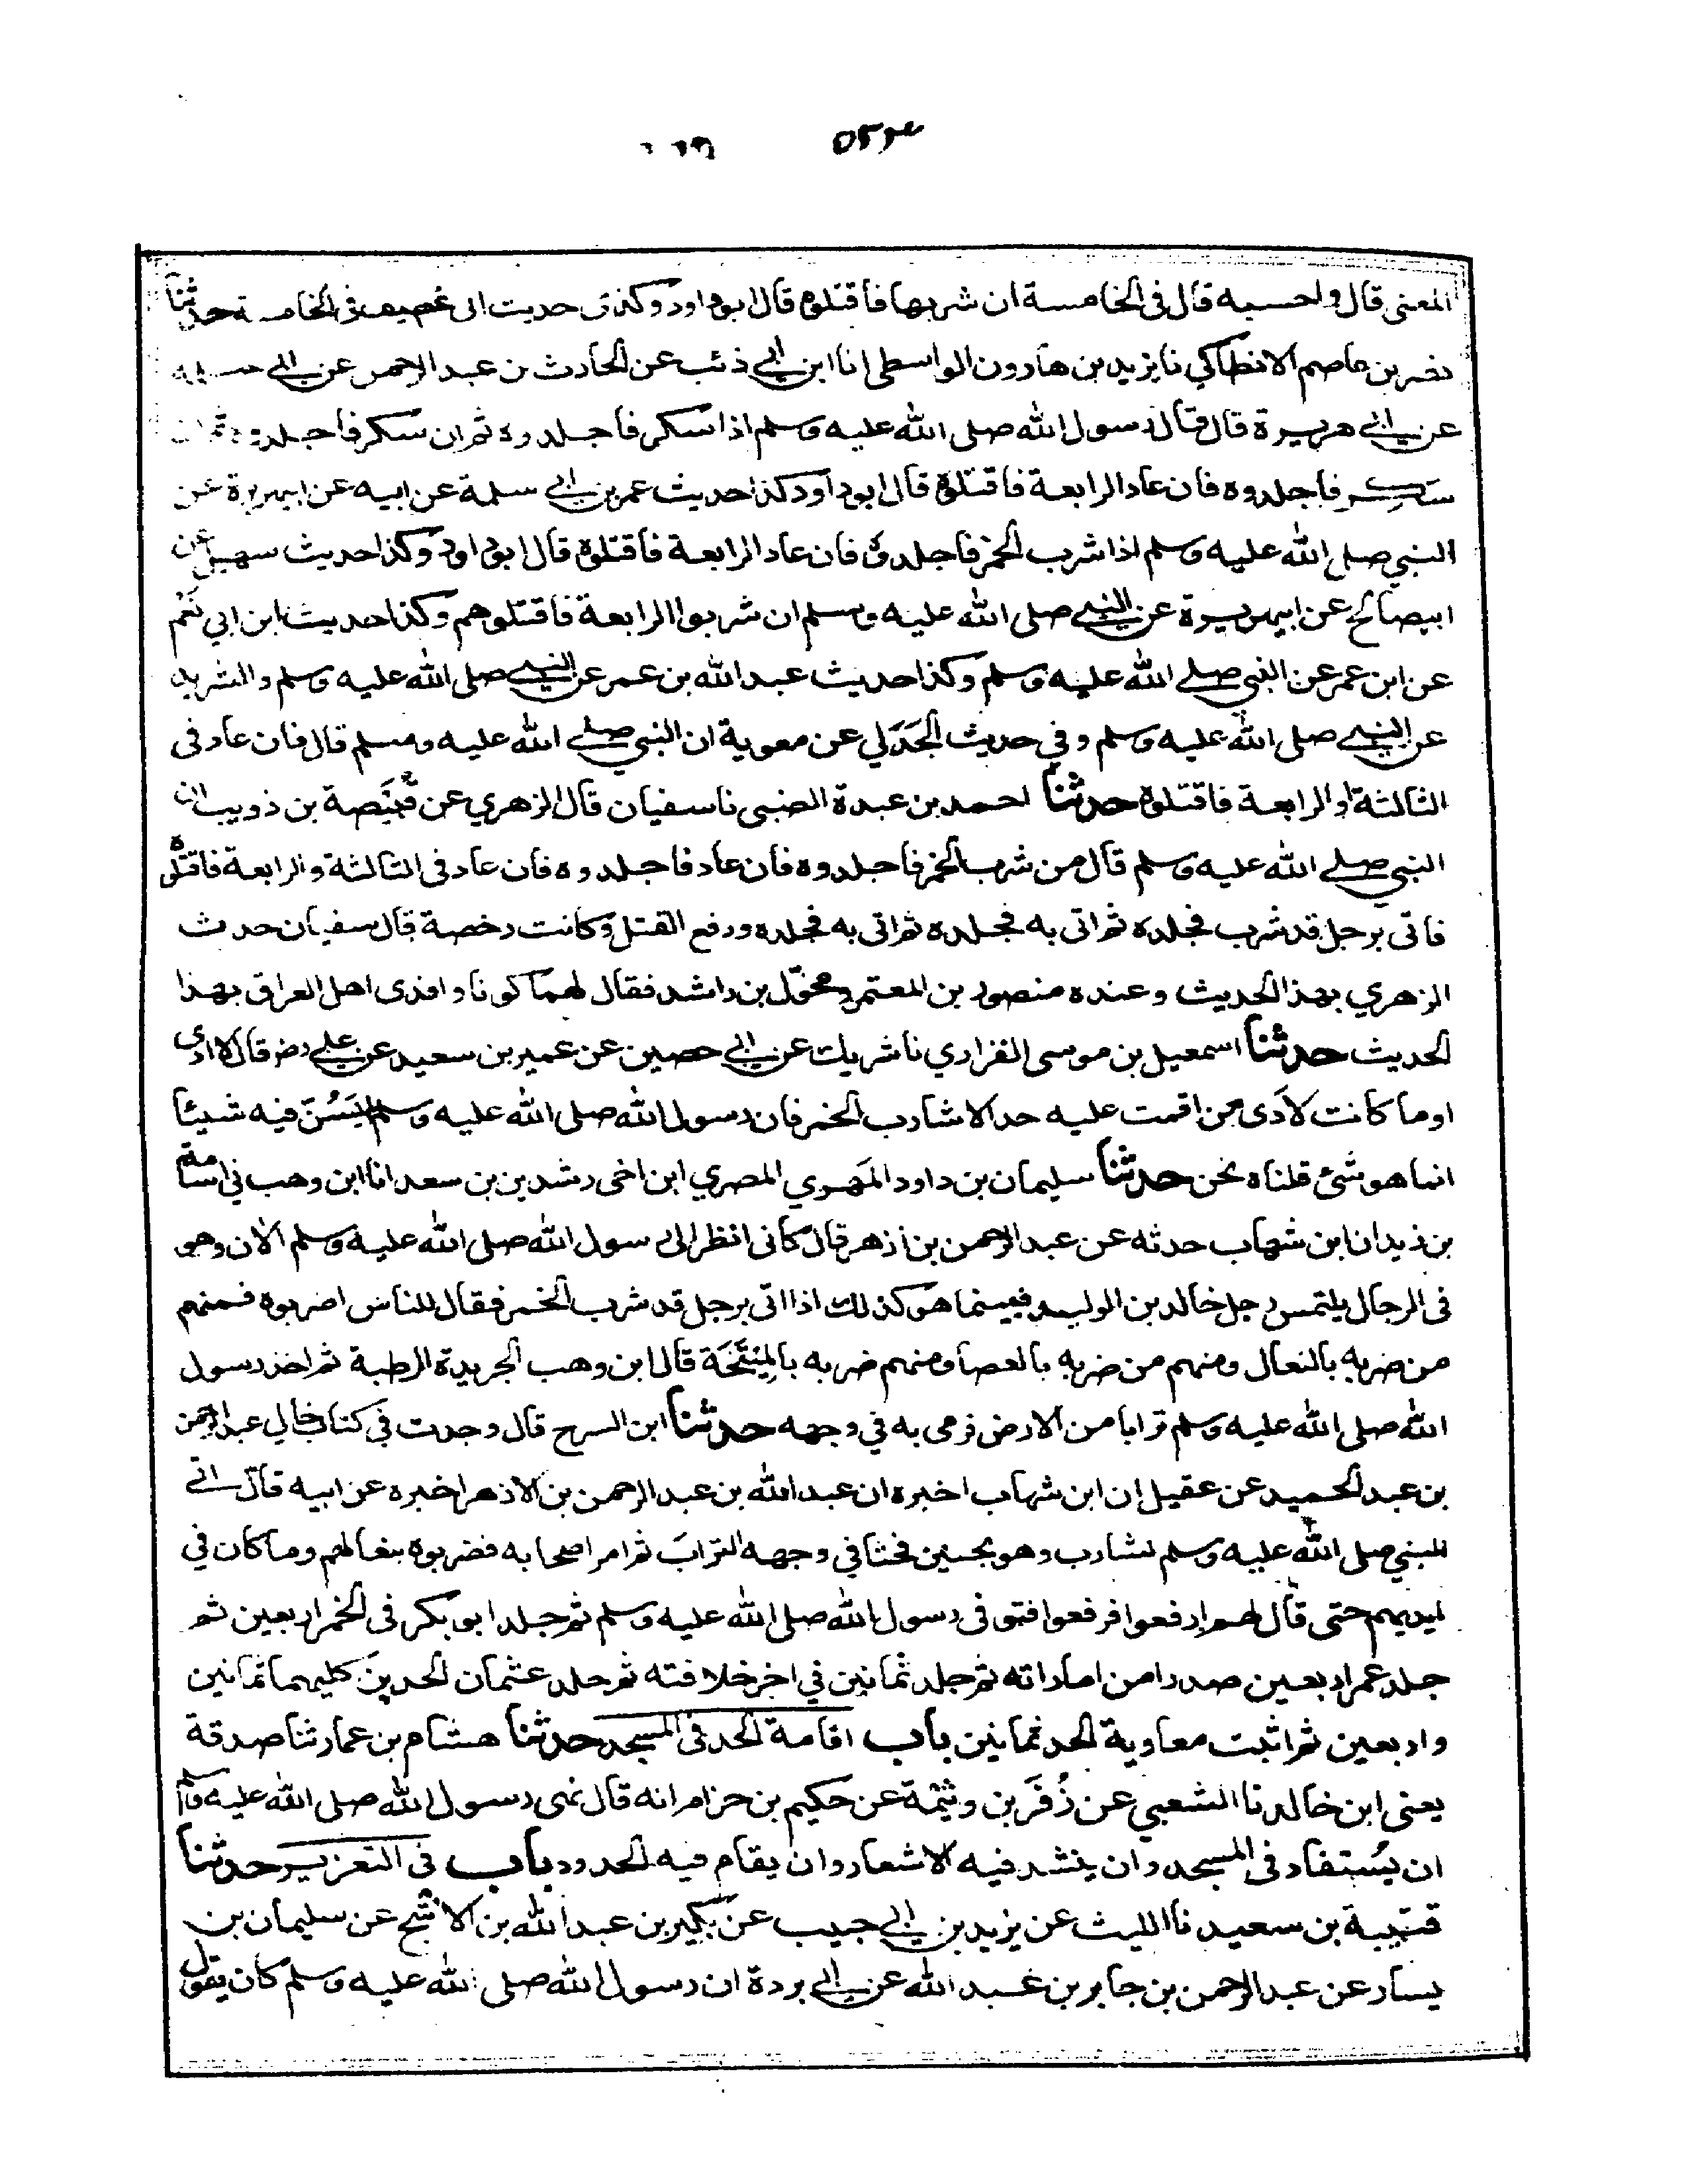 المعنى قال واحسبه قال في الخامسة ان شربها فاقتلوه قال ابو داود وكذى حديث ابى غصيف فى الخامسة حدثنا
نصر بن عاصم الانطاكي نا يزيد بن هارون الواسطى انا ابن ابي ذئب عن الحارث بن عبد الرحمن عن ابي سلمه
عن ابي هريرة قال قال رسول الله صلى الله عليه وسلم اذا سكر فاجلدوه ثم ان سكر فاجلدوه ثم ان
سكر فاجلدوه فان عاد الرابعة فاقتلوه قال ابو داود وكذا حديث عمر بن ابي سلمة عن ابيه عن ابيهريرة عن
النبي صلى الله عليه وسلم اذا شرب الخمر فاجلدوه فان عاد الرابعة فاقتلوه قال ابو داود وكذا حديث سهيل عن
ابيصالح عن ابيهريرة عن النبي صلى الله عليه وسلم ان شربوا الرابعة فاقتلوهم وكذا حديث ابن ابي نعم
عن ابن عمر عن النبي صلى الله عليه وسلم وكذا حديث عبد الله بن عمر عن النبي صلى الله عليه وسلم والشريد
عن النبي صلى الله عليه وسلم وفي حديث الجدلي عن معوية ان النبي صلى الله عليه وسلم قال فان عاد فى
الثالثة او الرابعة فاقتلوه حدثنا احمد بن عبدة الضبى نا سفيان قال الزهري عن قبيصة بن ذويب ان
النبي صلى الله عليه وسلم قال من شرب الخمر فاجلدوه فان عاد فاجلدوه فان عاد فى الثالثة والرابعة فاقتلوه
فاتى برجل قد شرب فجلده ثم اتى به فجلده ثم اتى به فجلده ورفع القتل وكانت رخصة قال سفيان حدث
الزهري بهذا الحديث وعنده منصور بن المعتمر ومخول بن راشد فقال لهما كونا وافدى اهل العراق بهذا
الحديث حدثنا اسمعيل بن موسى الفزاري نا شريك عن ابي حصين عن عمير بن سعيد عن علي رضـ قال لا ادى
او ما كانت لادى من اقمت عليه حد الا شارب الخمر فان رسول الله صلى الله عليه وسلم لم يسن فيه شيئا
انما هو شئ قلناه نحن حدثنا سليمان بن داود المهري المصري ابن اخى رشدين بن سعد انا ابن وهب نى اسامة
بن زيد ان ابن شهاب حدثه عن عبد الرحمن بن ازهر قال كانى انظر الى رسول الله صلى الله عليه وسلم الان وهو
فى الرجال يلتمس رجل خالد بن الوليد فبينما هو كذلك اذا اتى برجل قد شرب الخمر فقال للناس اضربوه فمنهم
من ضربه بالنعال ومنهم من ضربه بالعصا ومنهم ضربه بالميتخة قال ابن وهب الجريدة الرطبة ثم اخذ رسول
الله صلى الله عليه وسلم ترابا من الارض فرمى به في وجهه حدثنا ابن السرح قال وجدت في كتاب خالي عبد الرحمن
بن عبد الحميد عن عقيل ان ابن شهاب اخبره ان عبد الله بن عبد الرحمن بن الازهر اخبره عن ابيه قال اتي
النبي صلى الله عليه وسلم لشارب وهو بحنين فحثا في وجهه التراب ثم امر اصحابه فضربوه بنعالهم وما كان في
ايديهم حتى قال لهم ارفعوا فرفعوا فتوفى رسول الله صلى الله عليه وسلم ثم جلد ابو بكر فى الخمر اربعين ثم
جلد عمر اربعين صدرا من اماراته ثم جلد ثمانين في اخر خلافته ثم جلد عثمان الحدين كليهما ثمانين
واربعين ثم اثبت معاوية الحد ثمانين باب اقامة الحد فى المسجد حدثنا هشام بن عمار ثنا صدقة
يعنى ابن خالد نا الشعبي عن زفر بن وثيمة عن حكيم بن حزام انه قال نهى رسول الله صلى الله عليه وسلم
ان يستقاد فى المسجد وان ينشد فيه الاشعار وان يقام فيه الحدود باب فى التعزير حدثنا
قتيبة بن سعيد نا الليث عن يزيد بن ابي حبيب عن بكير بن عبد الله بن الاشج عن سليمان بن
يسار عن عبد الرحمن بن جابر بن عبد الله عن ابي بردة ان رسول الله صلى الله عليه وسلم كان يقول